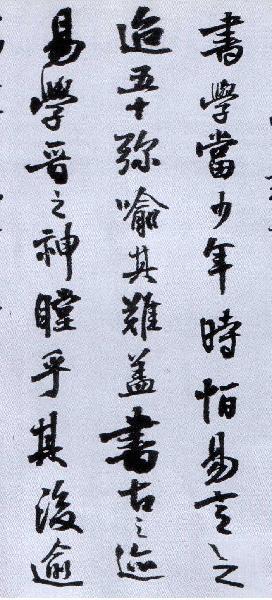 書學當少年時恒易言之
迨五十弥喻其難蓋書古之迹
易學晋之神瞠乎其後逾